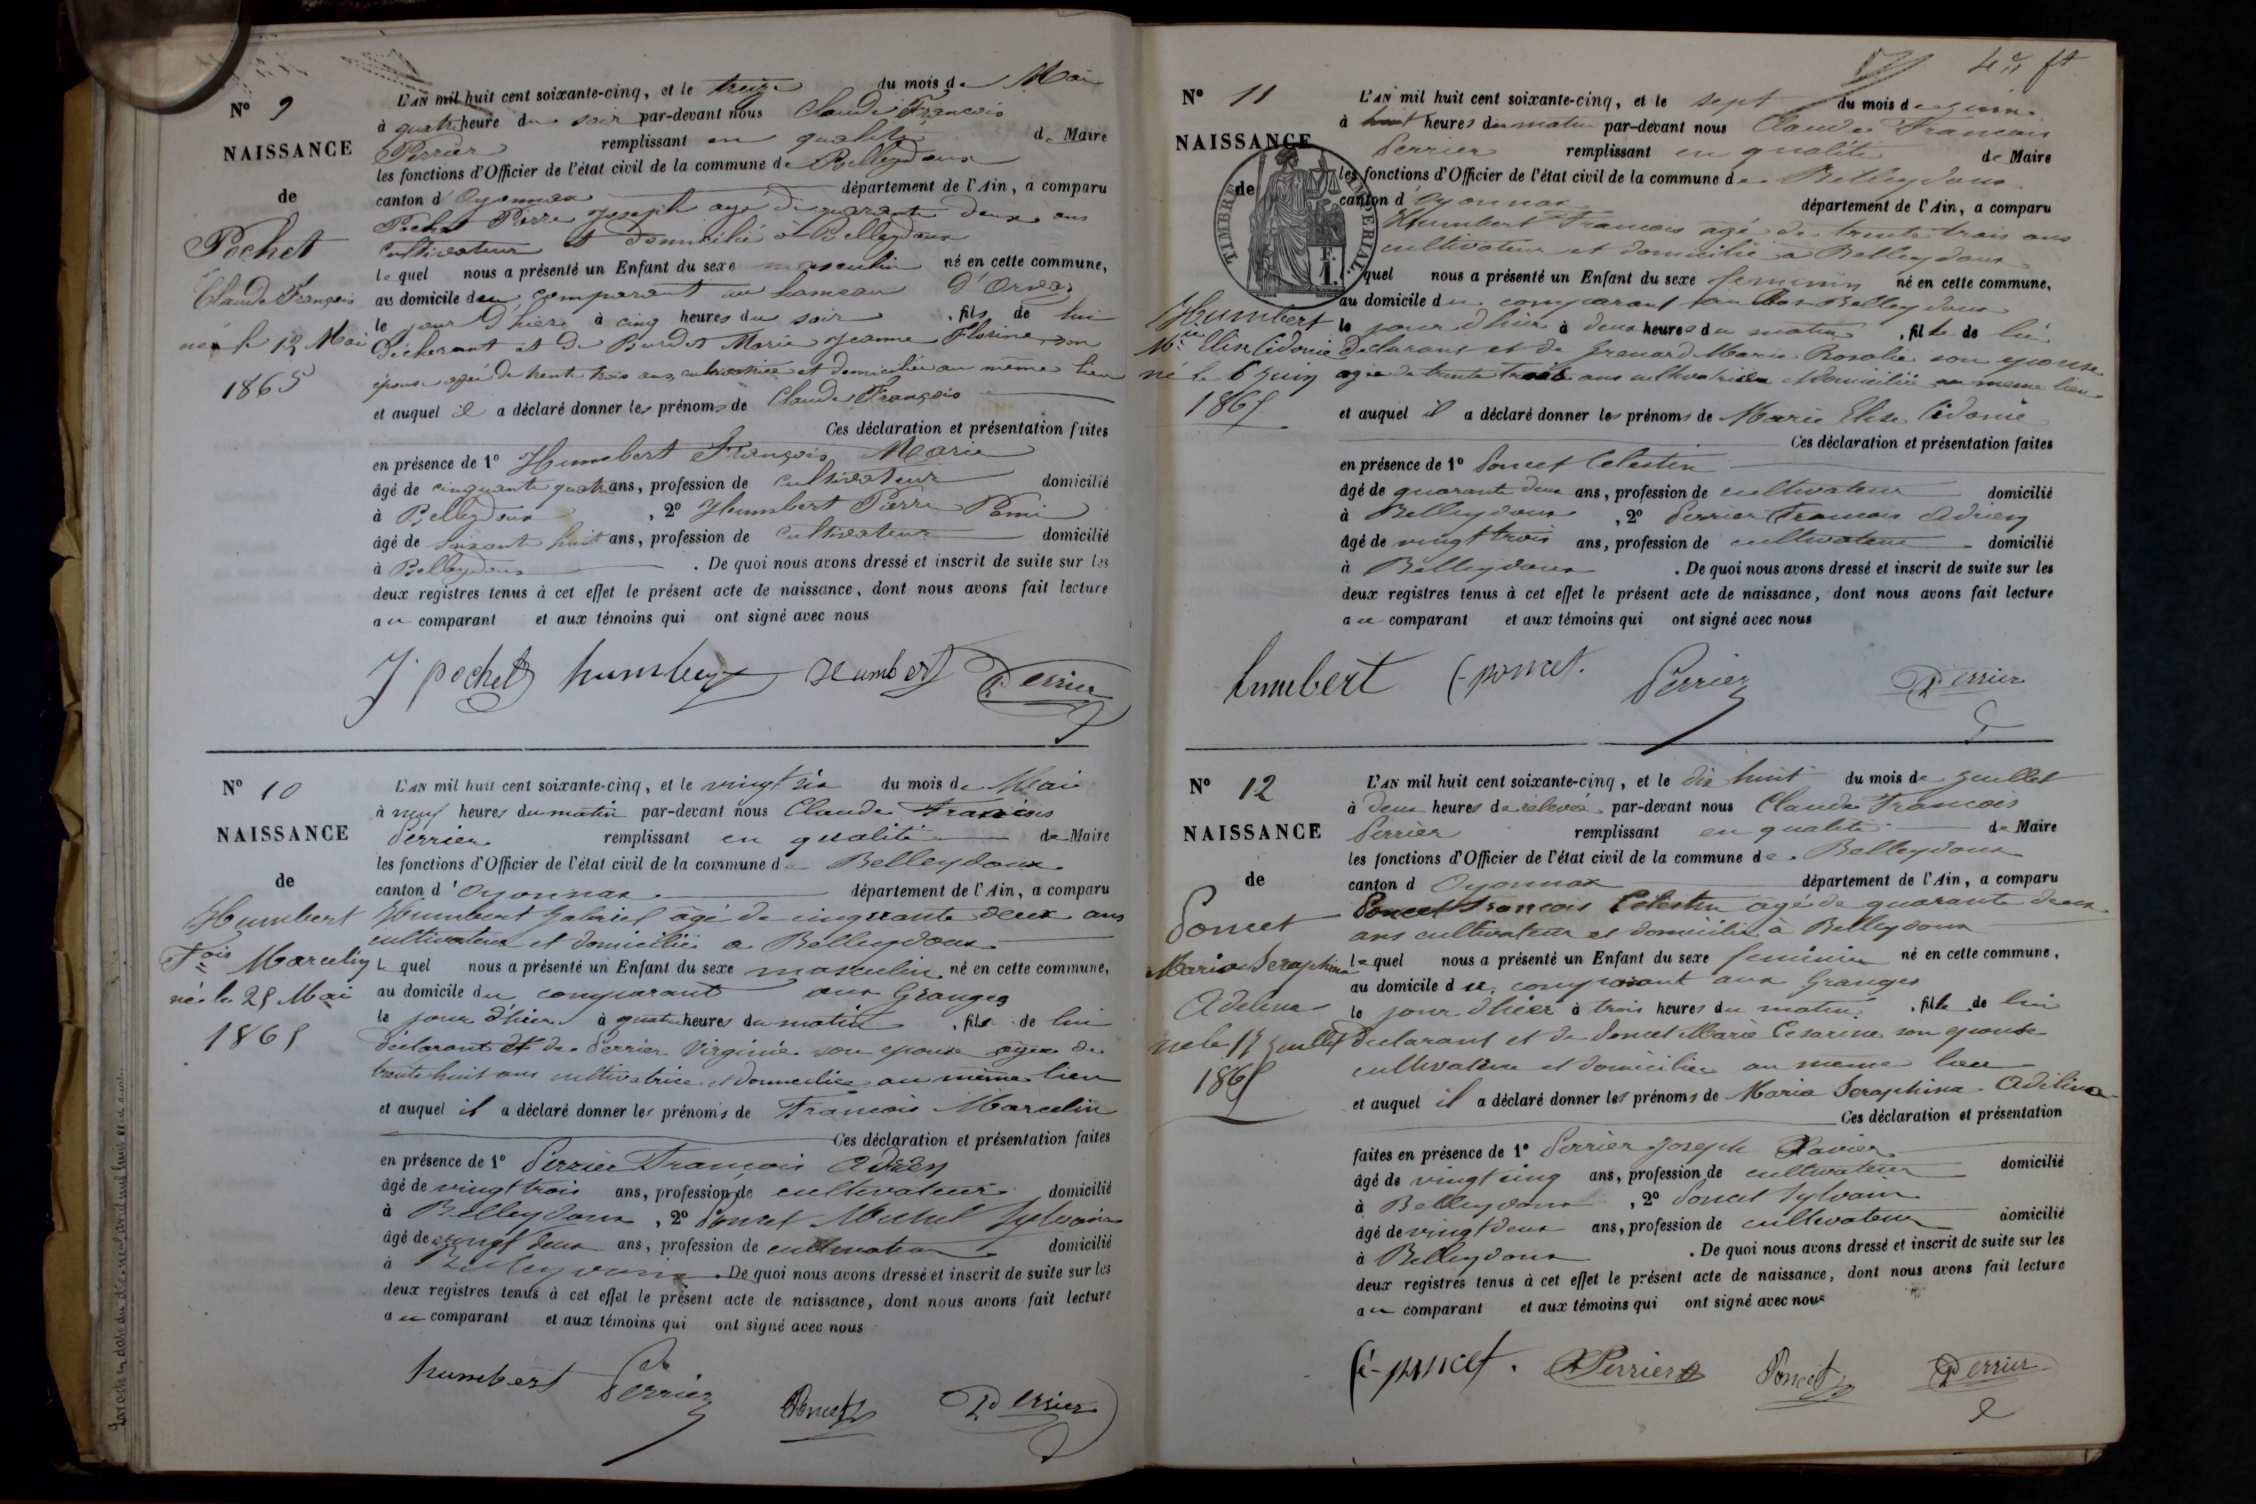 N° 9
NAISSANCE
de
Pochet
Claude François
né le 12 Mai
1865
L'AN mil huit cent soixante-cinq, et le treize du mois de Mai
à quatre heure du soir par-devant nous Claude François
Perrier remplissant en qualité de Maire
les fonctions d'Officier de l'état civil de la commune de Belleydoux
canton d'Oyonnax département de l'Ain, a comparu
Pochet Pierre Joseph agé de quarante deux ans
Cultivateur et domicilié à Belleydoux
le quel nous a présenté un Enfant du sexe masculin né en cette commune,
au domicile du comparant au hameau d'Orvaz
le jour d'hier à cinq heures du soir, fils de lui
Déclarant et de Burdet Marie Jeanne Florine son
épouse agée de trente trois ans cultivatrice et domiciliée au même lieu
et auquel il a déclaré donner les prénoms de Claude François
Ces déclaration et présentation faites
en présence de 1° Humbert François Marie
âgé de cinquante quatre ans, profession de cultivateur domicilié
à Belleydoux, 2° Humbert Pierre Remi
âgé de soixante huit ans, profession de cultivateur domicilié
à Belleydoux. De quoi nous avons dressé et inscrit de suite sur les
deux registres tenus à cet effet le présent acte de naissance, dont nous avons fait lecture
au comparant et aux témoins qui ont signé avec nous
J. pochet humbert humbert Perrier
N° 10
NAISSANCE
de
Humbert
Fois Marcelin
né le 25 Mai
1865
L'AN mil huit cent soixante-cinq, et le vingt six du mois de Mai
à neuf heures du matin par-devant nous Claude François
Perrier remplissant en qualité de Maire
les fonctions d'Officier de l'état civil de la commune de Belleydoux
canton d'Oyonnax département de l'Ain, a comparu
Humbert Gabriel âgé de cinquante deux ans
cultivateur et domicilié à Belleydoux
le quel nous a présenté un Enfant du sexe masculin né en cette commune,
au domicile du comparant aux Granges
le jour d'hier à quatre heures du matin, fils de lui
déclarant et de Perrier Virginie son epouse agée de
trente huit ans cultivatrice et domiciliée au même lieu
et auquel il a déclaré donner les prénoms de François Marcelin
Ces déclaration et présentation faites
en présence de 1° Perrier François Adrien
âgé de vingt trois ans, profession de cultivateur domicilié
à Belleydoux, 2° Poncet Michel Sylvain
âgé de vingt deux ans, profession de cultivateur domicilié
à Belleydoux. De quoi nous avons dressé et inscrit de suite sur les
deux registres tenus à cet effet le présent acte de naissance, dont nous avons fait lecture
au comparant et aux témoins qui ont signé avec nous
humbert Perrier Poncet Perrier
N° 11
NAISSANCE
de
TIMBRE IMPÉRIAL
Humbert
Mie Elise Cidonie
né le 6 juin
1865
L'AN mil huit cent soixante-cinq, et le sept du mois de juin
à huit heures du matin par-devant nous Claude François
Perrier remplissant en qualité de Maire
les fonctions d'Officier de l'état civil de la commune de Belleydoux
canton d'Oyonnax département de l'Ain, a comparu
Humbert François agé de trente trois ans
cultivateur et domicilié à Belleydoux
quel nous a présenté un Enfant du sexe feminin né en cette commune,
au domicile du comparant au bas Belleydoux
le jour d'hier à deux heures du matin, fille de lui
Declarant et de Grenard Marie Rosalie son epouse
agee de trente trois ans cultivatrice et domiciliée au meme lieu
et auquel il a déclaré donner les prénoms de Marie Elise Cidonie
Ces déclaration et présentation faites
en présence de 1° Poncet Celestin
âgé de quarante deux ans, profession de cultivateur domicilié
à Belleydoux, 2° Perrier François Adrien
âgé de vingt trois ans, profession de cultivateur domicilié
à Belleydoux. De quoi nous avons dressé et inscrit de suite sur les
deux registres tenus à cet effet le présent acte de naissance, dont nous avons fait lecture
au comparant et aux témoins qui ont signé avec nous
humbert C-poncet. Perrier Perrier
N° 12
NAISSANCE
de
Poncet
Maria Seraphina
Adelina
né le 17 juillet
1865
L'AN mil huit cent soixante-cinq, et le dix huit du mois de juillet
à deux heures de relevée par-devant nous Claude François
Perrier remplissant en qualité de Maire
les fonctions d'Officier de l'état civil de la commune de Belleydoux
canton d Oyonnax département de l'Ain, a comparu
Poncet François Celestin agé de quarante deux
ans cultivateur et domicilié à Belleydoux
le quel nous a présenté un Enfant du sexe feminin né en cette commune,
au domicile du comparant aux Granges
le jour d'hier à trois heures du matin, fille de lui
declarant et de Poncet Marie Cesarine son epouse
cultivatrice et domiciliée au meme lieu
et auquel il a déclaré donner les prénoms de Maria Seraphina Adelina
Ces déclaration et présentation
faites en présence de 1° Perrier Joseph Xavier
âgé de vingt cinq ans, profession de cultivateur domicilié
à Belleydoux, 2° Poncet Sylvain
âgé de vingt deux ans, profession de cultivateur domicilié
à Belleydoux. De quoi nous avons dressé et inscrit de suite sur les
deux registres tenus à cet effet le présent acte de naissance, dont nous avons fait lecture
au comparant et aux témoins qui ont signé avec nous
C-poncet. Perrier Poncet Perrier